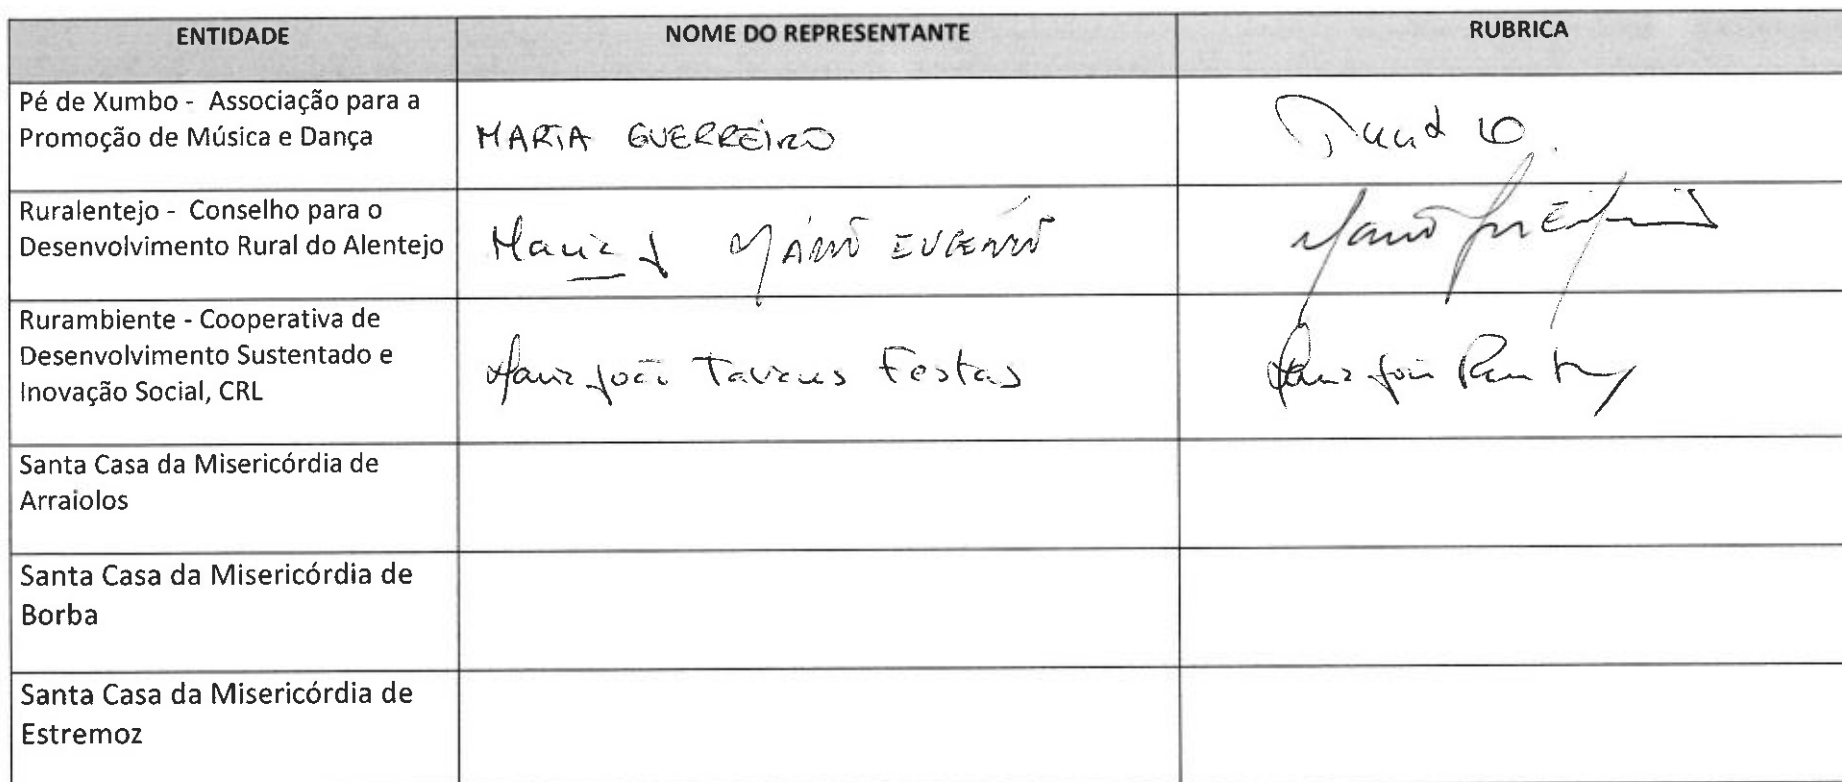 ENTIDADE NOME DO REPRESENTANTE RUBRICA
Pé de Xumbo - Associação para a
Promoção de Música e Dança
MARTA GUERREIRO
Ruralentejo - Conselho para o
Desenvolvimento Rural do Alentejo
MÁRIO EUGÉNIO
Rurambiente - Cooperativa de
Desenvolvimento Sustentado e
Inovação Social, CRL
Maria João Tavares Festas
Santa Casa da Misericórdia de
Arraiolos
Santa Casa da Misericórdia de
Borba
Santa Casa da Misericórdia de
Estremoz